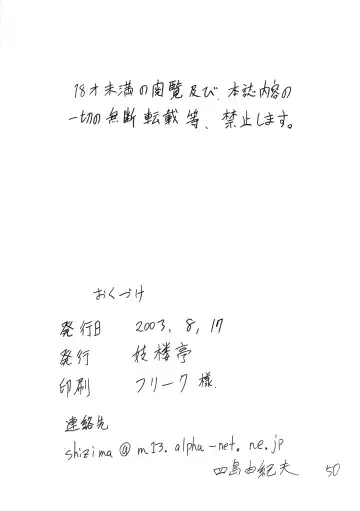 18才未満の閲覧及び、本誌内容の
一切の無断転載等、禁止します。
おくづけ
発行日 2003, 8, 17
発行 枝楼亭
印刷 フリーク様.
連絡先
shizima@m13.alpha-net.ne.jp
四島由紀夫 50